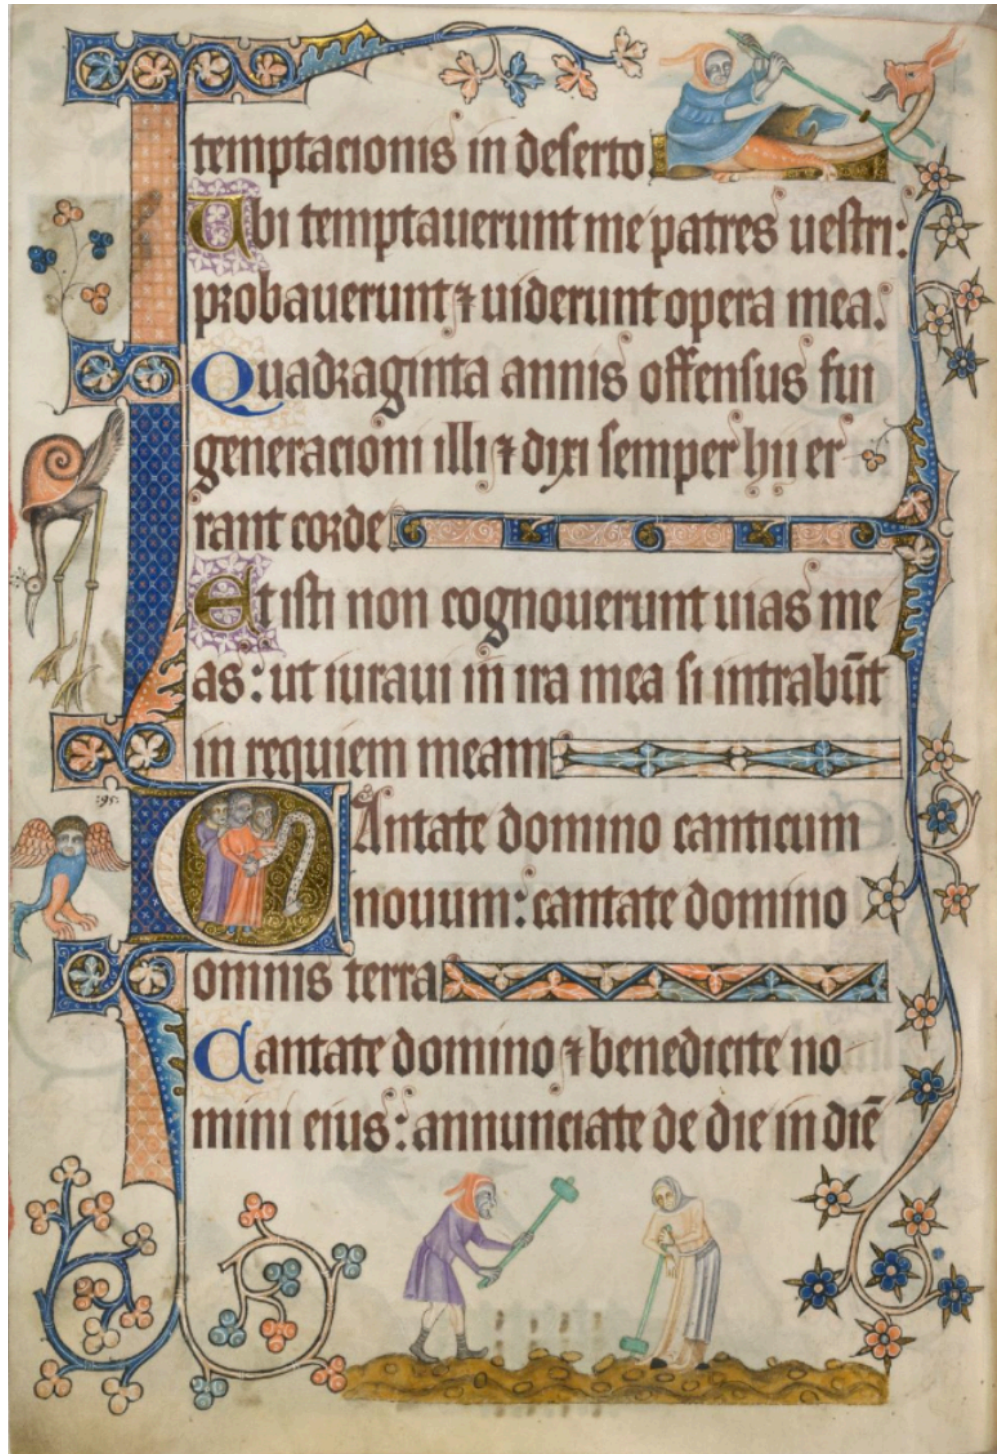 temptacionis in deserto
Ubi temptauerunt me patres uestri:
probauerunt ⁊ uiderunt opera mea.
Quadraginta annis offensus fui
generacioni illi ⁊ dixi semper hii er
rant corde
Et isti non cognouerunt uias me
as: ut iuraui in ira mea si intrabūt
in requiem meam
:95:
CAntate domino canticum
nouum: cantate domino
omnis terra
Cantate domino ⁊ benedicite no
mini eius: annunciate de die in diē